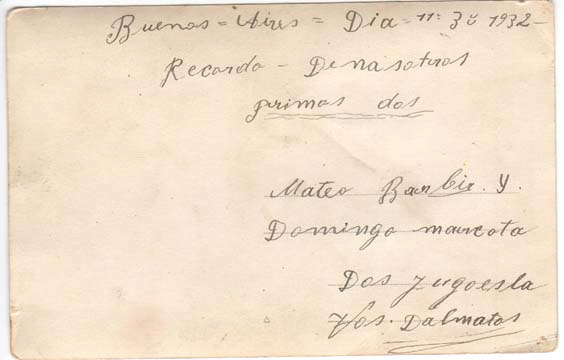 Buenos = Aires = Dia = 11: 30 1932 -
Recordo - Denasotros
primos dos
Mateo Barbir. Y.
Domingo marcota
Dos Jugoesla
Vos. Dalmatos